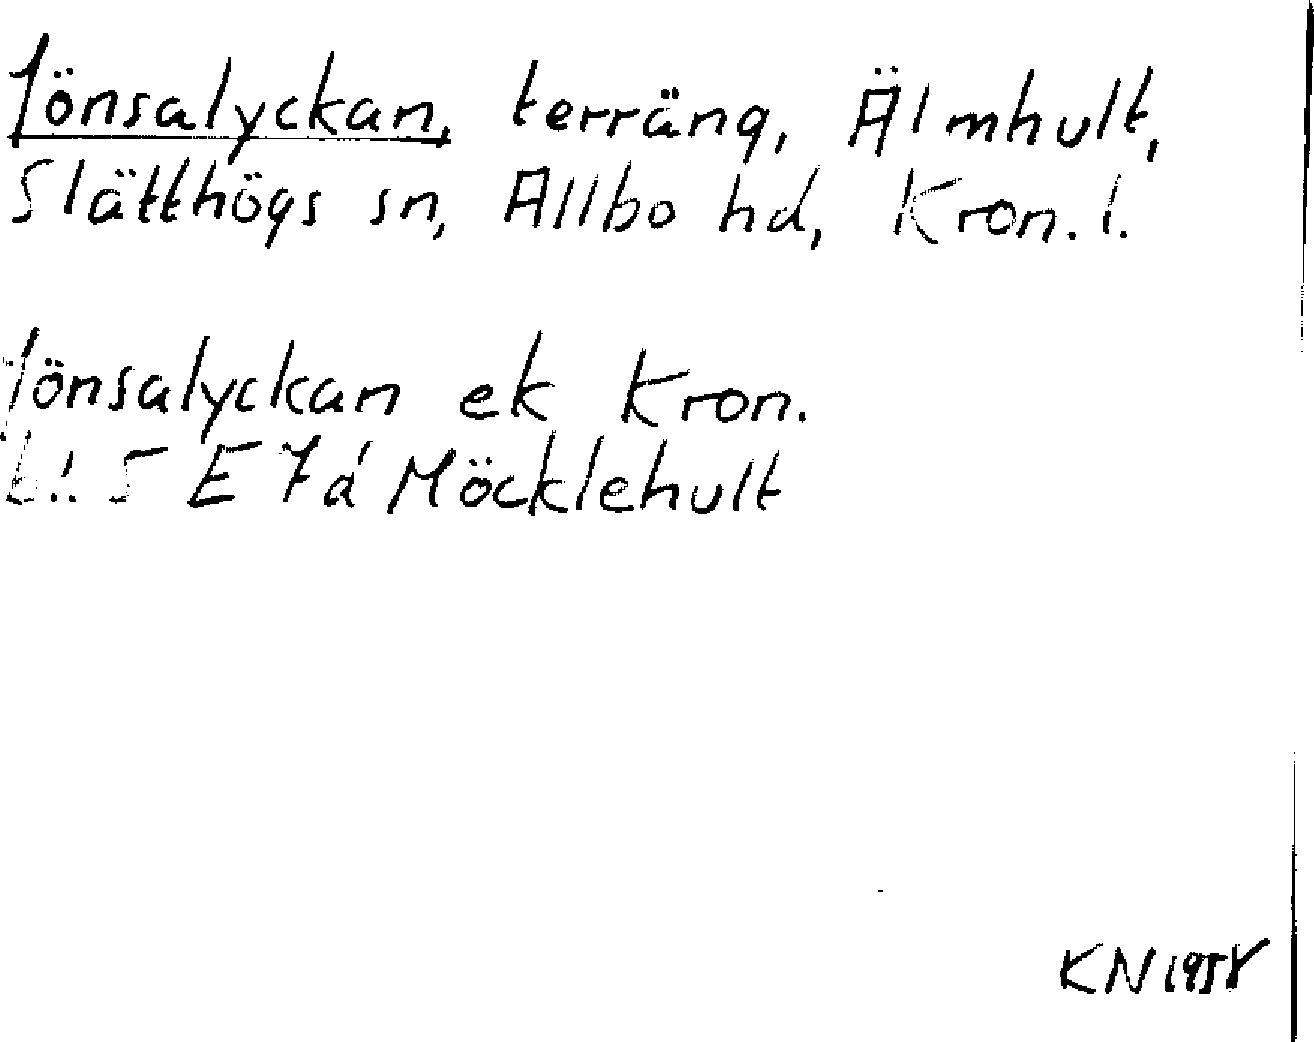 Jönsalyckan, terräng, Älmhult,
Slätthögs sn, Allbo hd, Kron. l.
Jönsalyckan ek Kron.
bl. 5 E 7 a Möcklehult
KN 1958